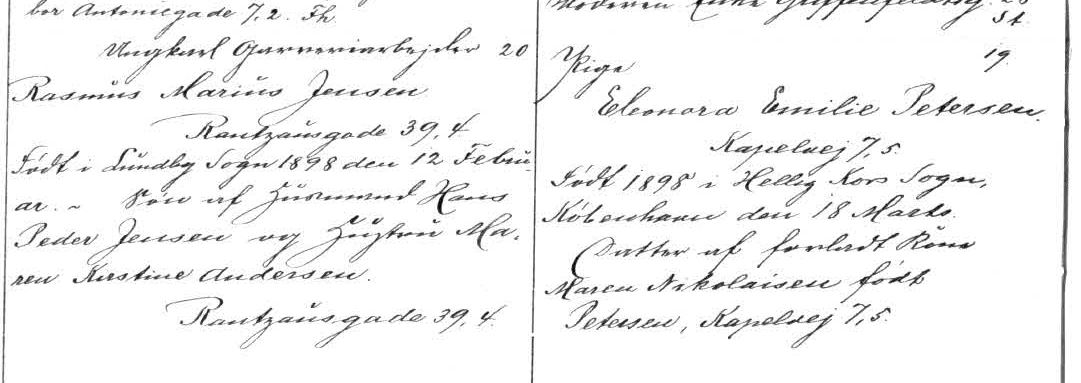 bor Antoniegade 7,2. Th.
Ungkarl Garveriarbejder 20
Rasmus Marius Jensen
Rantzausgade 39,4
Født i Lundby Sogn 1898 den 12 Febru-
ar. ~ Søn af Husmand Hans
Peder Jensen og Hustru Ma-
ren Kirstine Andersen.
Rantzausgade 39,4.
Moderen Enke Griffenfeldtsg. 28
St.
Pige 19.
Eleonora Emilie Petersen.
Kapelvej 7,5.
Født 1898 i Hellig Kors Sogn,
København den 18 Marts.
Datter af forladt Kone
Maren Nikolaisen født
Petersen, Kapelvej 7,5.